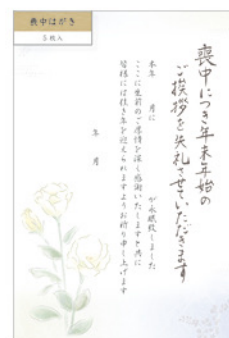 喪中はがき
5枚入
喪中につき年末年始の
ご挨拶を失礼させていただきます
本年 月に が永眠致しました
ここに生前のご厚情を深く感謝いたしますと共に
皆様には佳き年を迎えられますようお祈り申し上げます
年 月